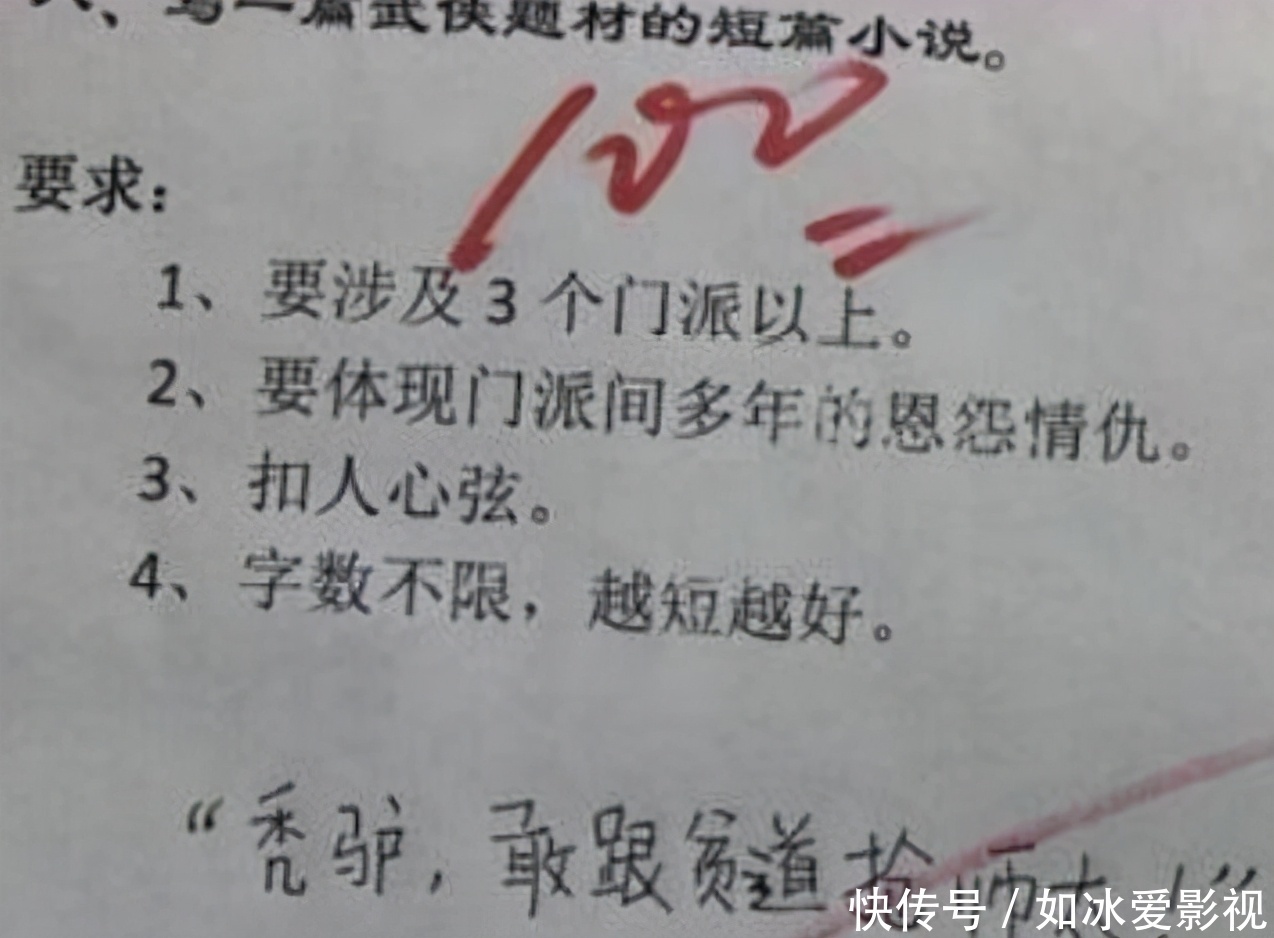 、写一篇武侠题材的短篇小说。
100
要求：
1、要涉及 3 个门派以上。
2、要体现门派间多年的恩怨情仇。
3、扣人心弦。
4、字数不限，越短越好。
“秃驴，敢跟贫道抢师太！”
快传号 / 如冰爱影视